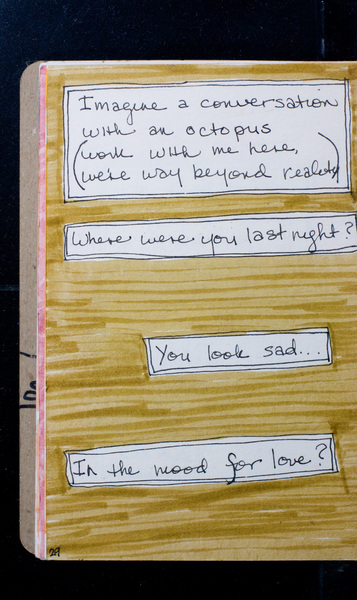 Imagine a conversation
with an octopus
(work with me here,
we're way beyond reality)
Where were you last night?
You look sad...
In the mood for love?
29